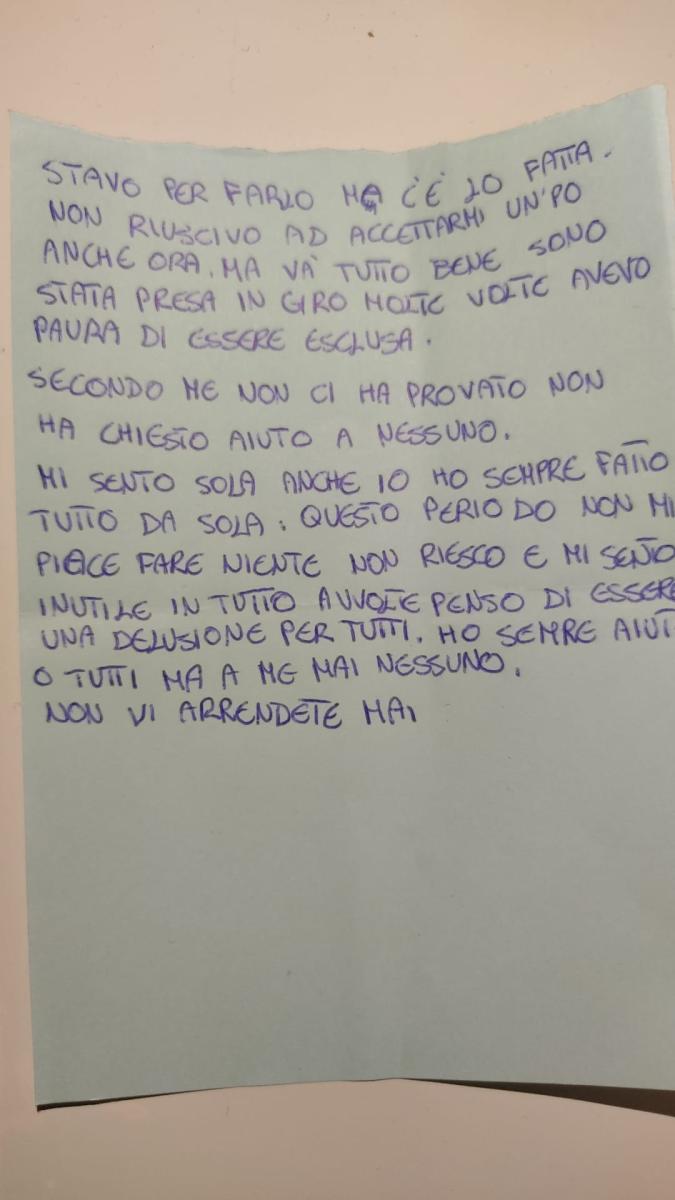 STAVO PER FARLO MA C'È LO FATTA.
NON RIUSCIVO AD ACCETTARMI UN'PO
ANCHE ORA. MA VÀ TUTTO BENE SONO
STATA PRESA IN GIRO MOLTE VOLTE AVEVO
PAURA DI ESSERE ESCLUSA.
SECONDO ME NON CI HA PROVATO NON
HA CHIESTO AIUTO A NESSUNO.
MI SENTO SOLA ANCHE IO HO SEMPRE FATTO
TUTTO DA SOLA. QUESTO PERIODO NON MI
PIACE FARE NIENTE NON RIESCO E MI SENTO
INUTILE IN TUTTO AVVOLTE PENSO DI ESSERE
UNA DELUSIONE PER TUTTI. HO SEMRE AIUT
O TUTTI MA A ME MAI NESSUNO.
NON VI ARRENDETE MAI